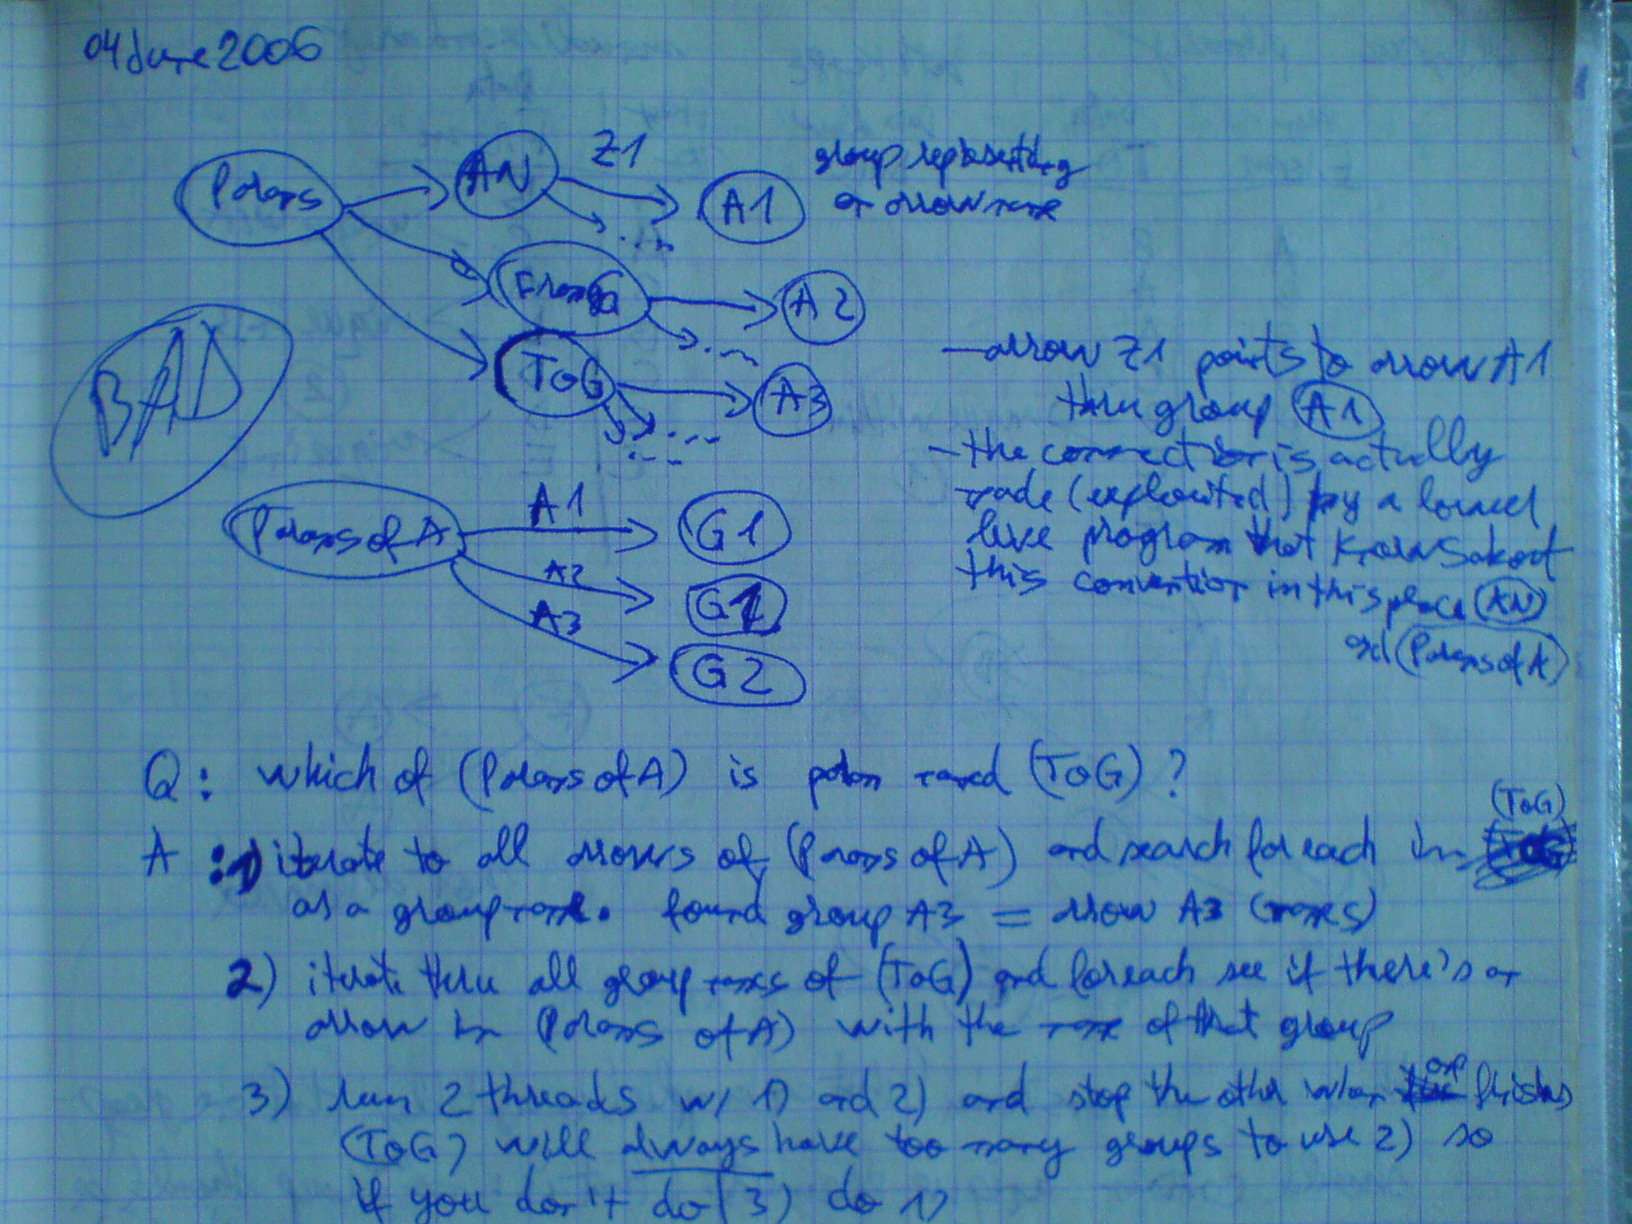 04 June 2006
Params
AN
Z1
A1
group representing
an arrow name
FromG
A2
ToG
A3
BAD
- arrow Z1 points to arrow A1
thru group (A1)
- the connection is actually
made (exploited) by a lower
level program that knows about
this convention in this place (AN)
and (Params of A)
Params of A
A1
G1
A2
G1
A3
G2
Q: which of (Params of A) is param named (ToG)?
A: 1) iterate to all arrows of (Params of A) and search foreach in (ToG)
as a group name. found group A3 = arrow A3 (names)
2) iterate thru all group names of (ToG) and foreach see if there's an
arrow in (Params of A) with the name of that group
3) run 2 threads w/ 1) and 2) and stop the other when one finishes
(ToG) will always have too many groups to use 2) so
if you don't do (3) do 1)